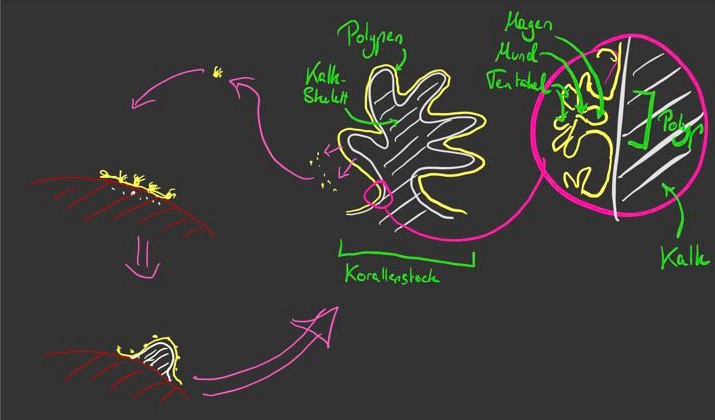 Polypen
Kalk-
Skelett
Korallenstock
Magen
Mund
Tentakel
Polyp
Kalk